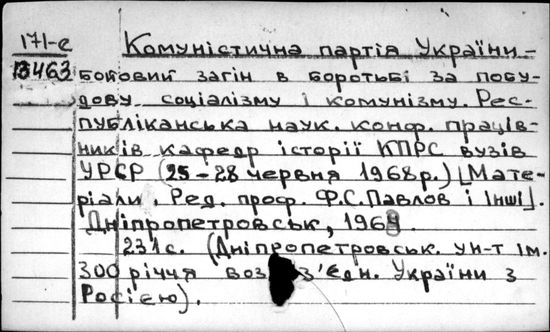 171-е
В463
Комуністична партія України –
бойовий загін в боротьбі за побу-
дову соціалізму і комунізму. Рес-
публіканська наук. конф. праців-
ників кафедр історії КПРС вузів
УРСР (25 – 28 червня 1968 р.) [Мате-
ріали. Ред. проф. Ф.С. Павлов і інші].
Дніпропетровськ, 1969.
231 с. (Дніпропетровськ. ун-т ім.
300 річчя воз з'єдн. України з
Росією).